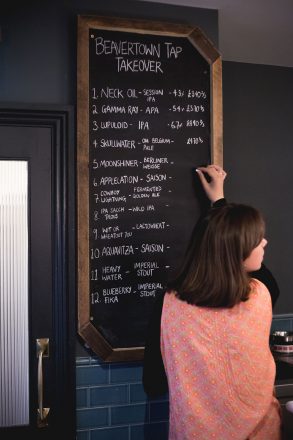 BEAVERTOWN TAP
TAKEOVER
1. NECK OIL - SESSION IPA - 4.3%
2 GAMMA RAY - APA - 5.4%
3. LUPULOID - IPA - 6.7%
4 SKULLWATER - OM BELGIUM PALE
5. MOONSHINER - BERLINER WEISSE -
6 APPLELATION - SAISON -
7 COWBOY LIGHTNING - FERMENTED GOLDEN ALE -
8 IPA - WILD IPA -
9 WIT OR WHEATOUT YOU - LACTOWEAT -
10 AQUAVITZA - SAISON -
11 HEAVY WATER - IMPERIAL STOUT -
12. BLUEBERRY FIKA - IMPERIAL STOUT -